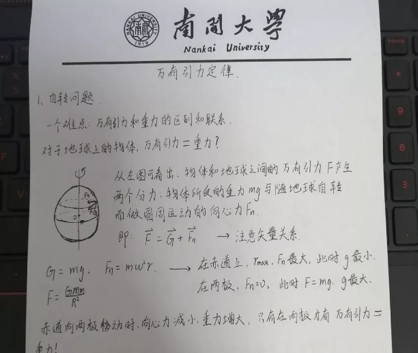 南開大學
Nankai University
万有引力定律.
1、自转问题
一个难点:万有引力和重力的区别和联系.
对于地球上的物体,万有引力=重力?
从左图可看出:物体和地球之间的万有引力F产生
两个分力:物体所受的重力mg与随地球自转
而做圆周运动的向心力Fn.
即: F=G+Fn → 注意矢量关系.
G=mg, Fn=mω²r. → 在赤道上,rmax,Fn最大,此时g最小.
F=GMm/R² 在两极,Fn=0,此时F=mg.g最大.
赤道向两极移动时,向心力减小,重力增大,只有在两极才有万有引力=
重力!